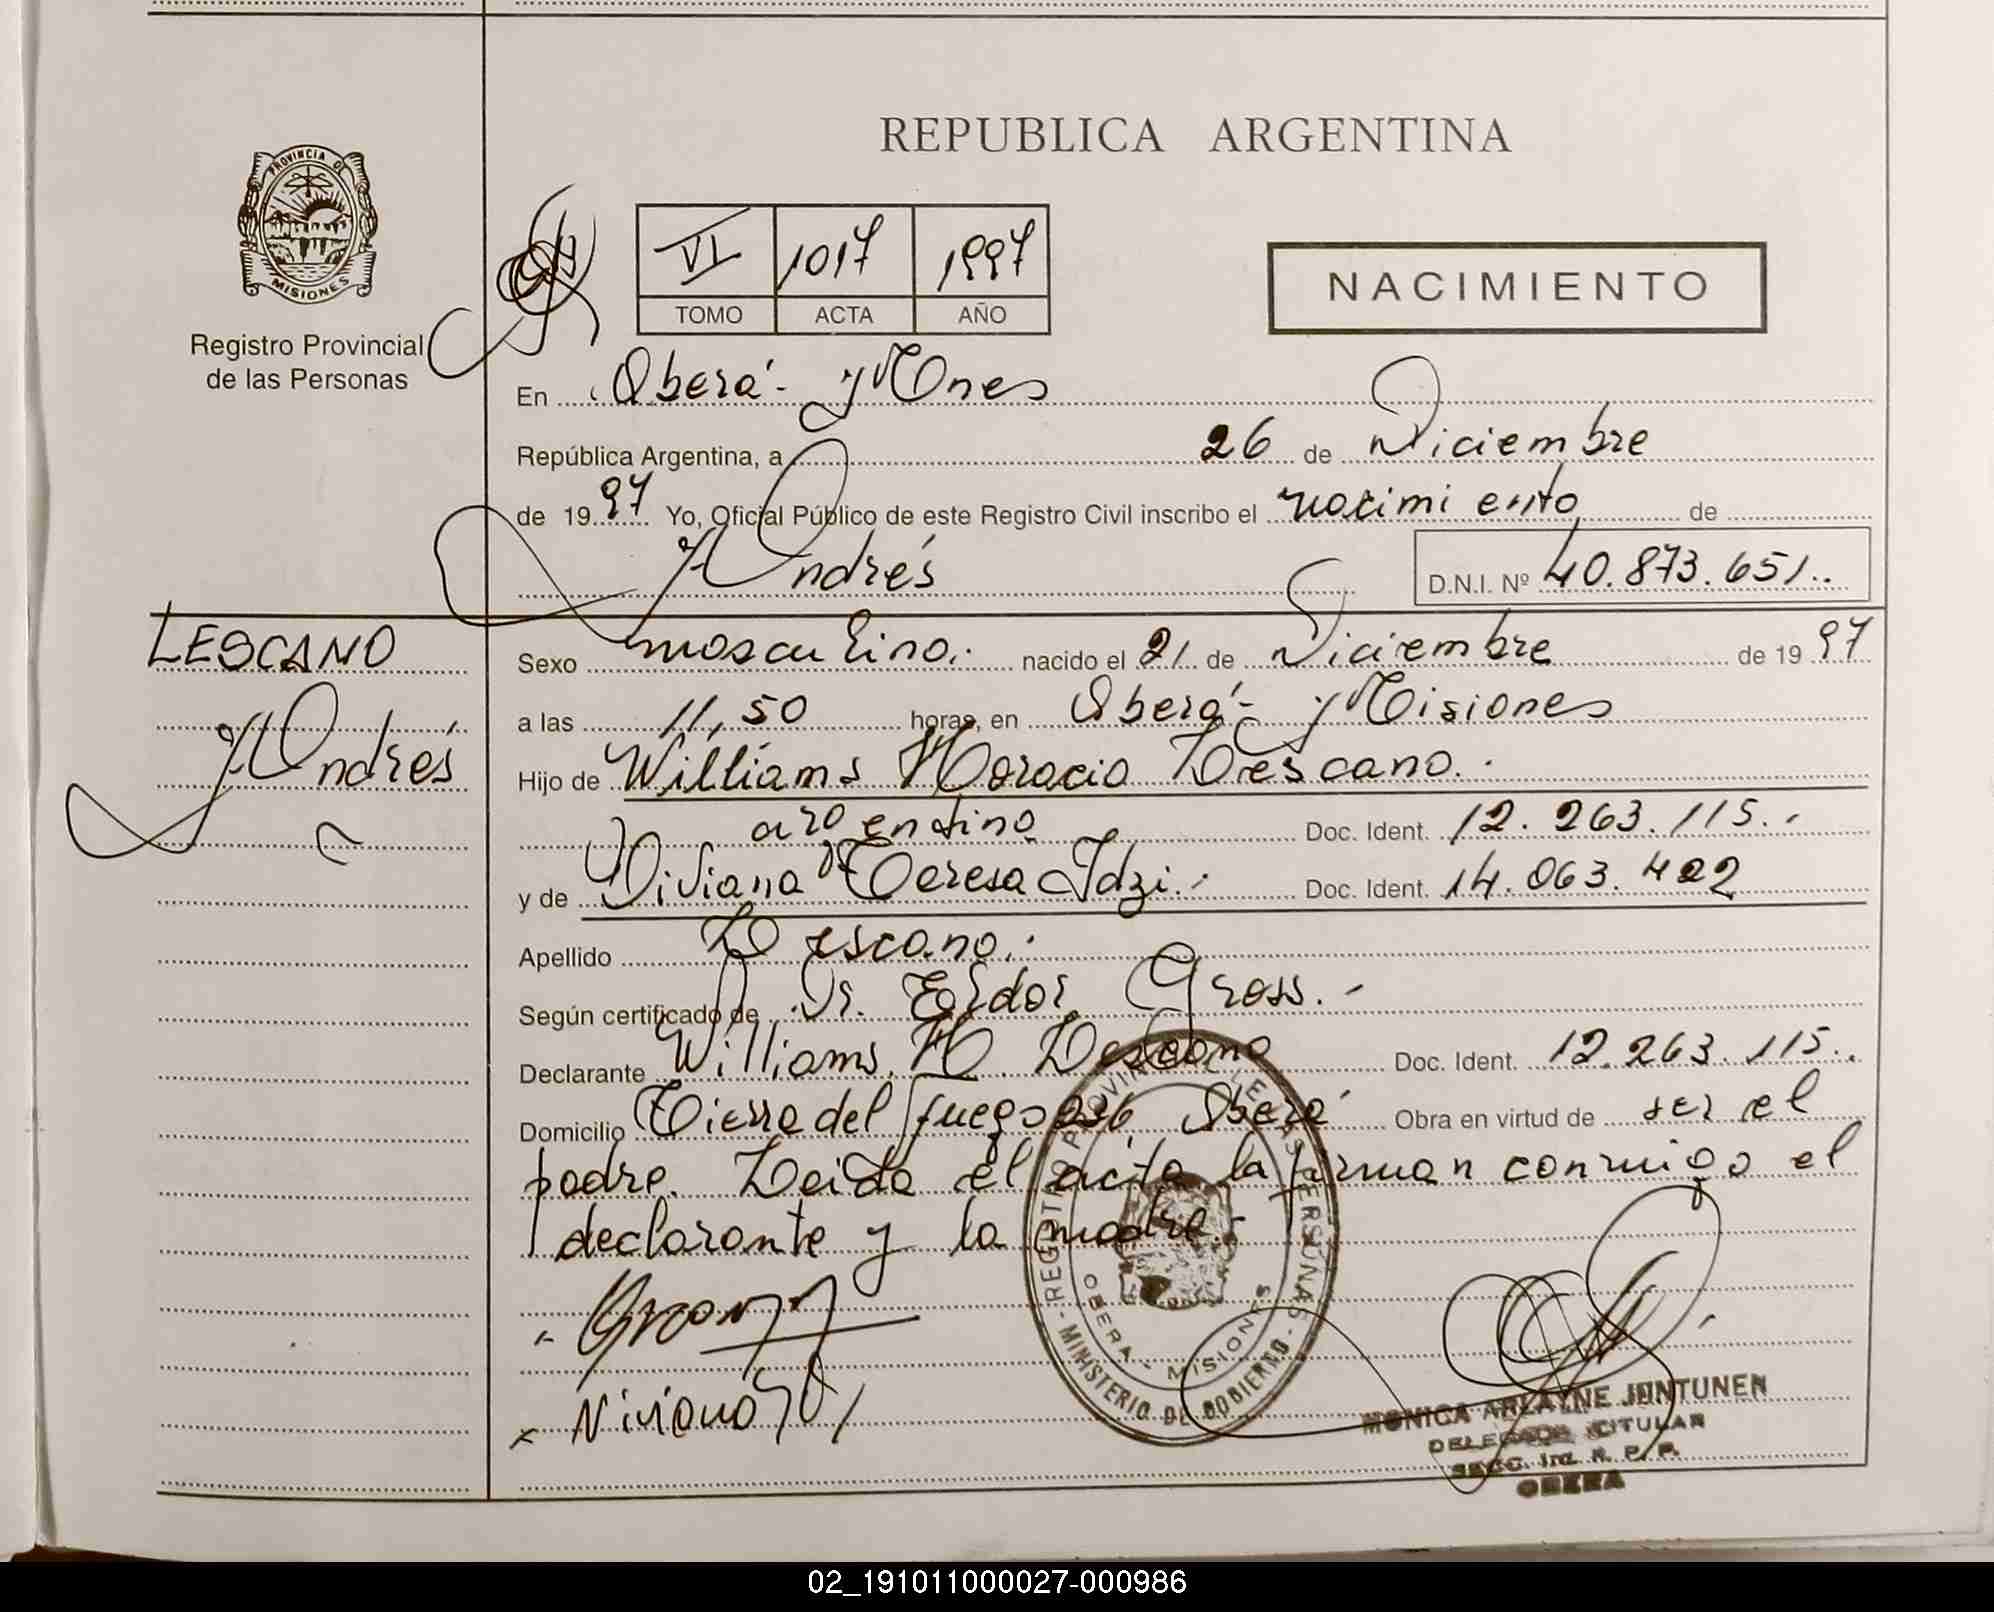 REPUBLICA ARGENTINA
PROVINCIA DE
MISIONES
Registro Provincial
de las Personas
VI 1017 1997
TOMO ACTA AÑO
NACIMIENTO
En Oberá - Mnes
República Argentina, a 26 de Diciembre
de 1997 Yo, Oficial Público de este Registro Civil inscribo el nacimiento de
Andrés
D.N.I. Nº 40.873.651..
LESCANO
Andrés
Sexo masculino. nacido el 21 de Diciembre de 1997
a las 11,50 horas, en Oberá - Misiones
Hijo de Williams Horacio Lescano.
argentino Doc. Ident. 12.263.115..
y de Viviana Teresa Idzi.- Doc. Ident. 14.063.422
Apellido Lescano.
Según certificado de Dr. Gross.-
Declarante Williams H Lescano Doc. Ident. 12.263.115..
Domicilio Tierra del fuego Oberá Obra en virtud de ser el
padre. Leida el acta la firman conmigo el
declarante y la madre.-
REGISTRO PROVINCIAL DE LAS PERSONAS
OBERA - MISIONES
- MINISTERIO DE GOBIERNO -
MONICA ARLAYNE JUNTUNEN
DELEGADA TITULAR
SECC. 1ra. R. P. P.
OBERA
02_191011000027-000986